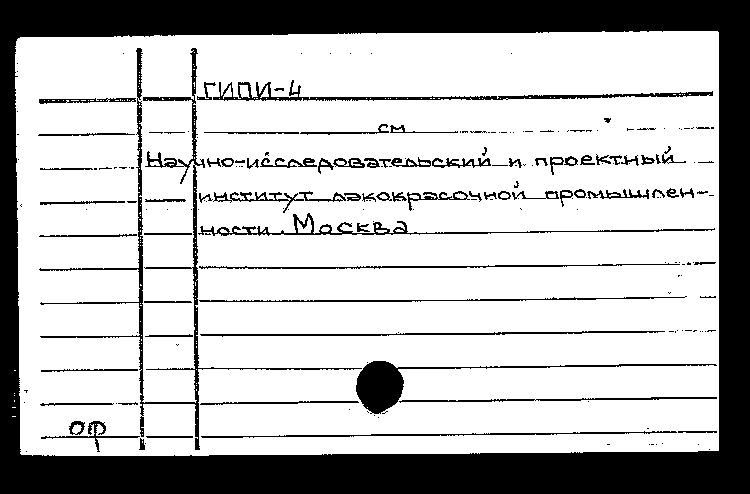 ГИПИ-4
см.
Научно-исследовательский и проектный
институт лакокрасочной промышлен-
ности. Москва
ОФ